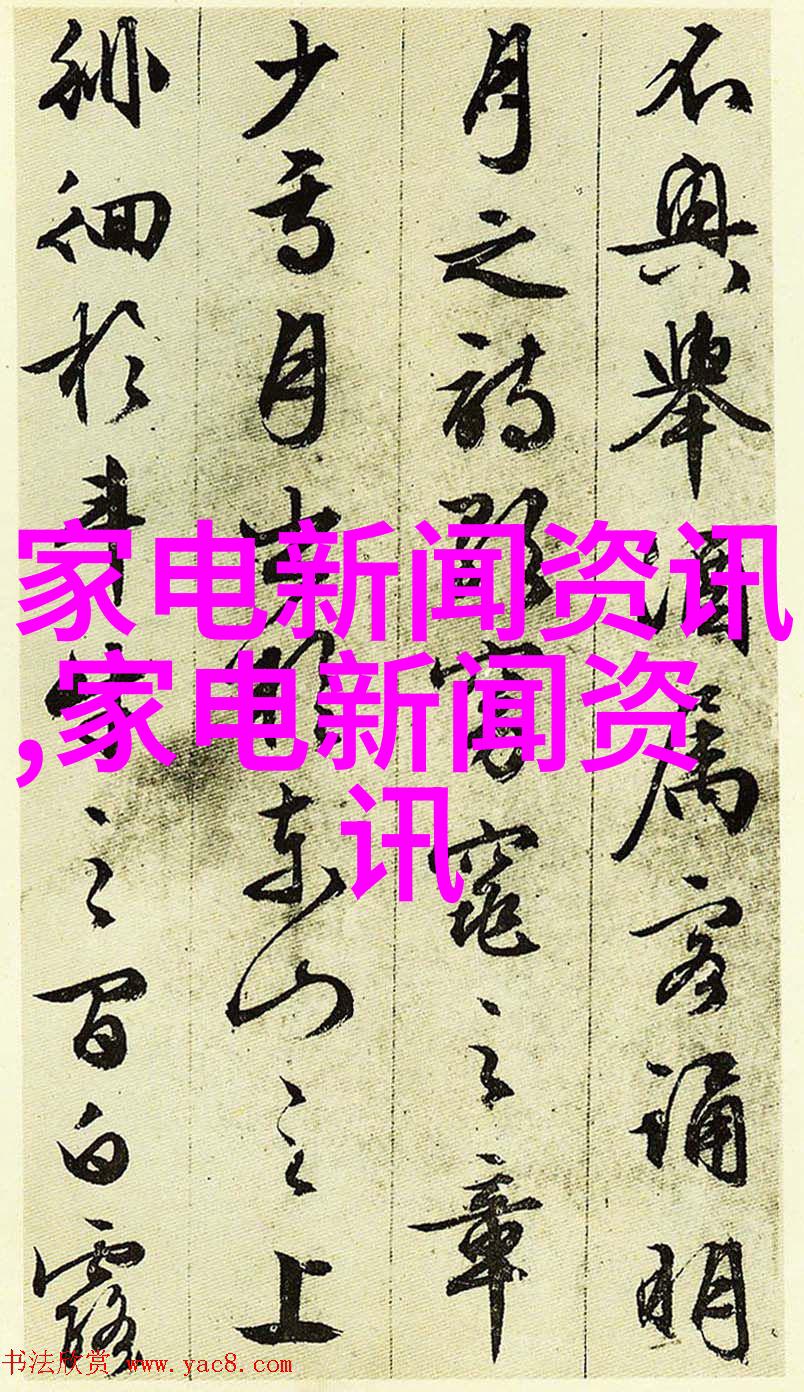 不興舉酒属客誦明
月之詩歌窈窕之章
少焉月出於東山之上
徘徊於斗牛之間白露
家电新闻资讯
,家电新闻资
讯
书法欣赏 www.yac8.com